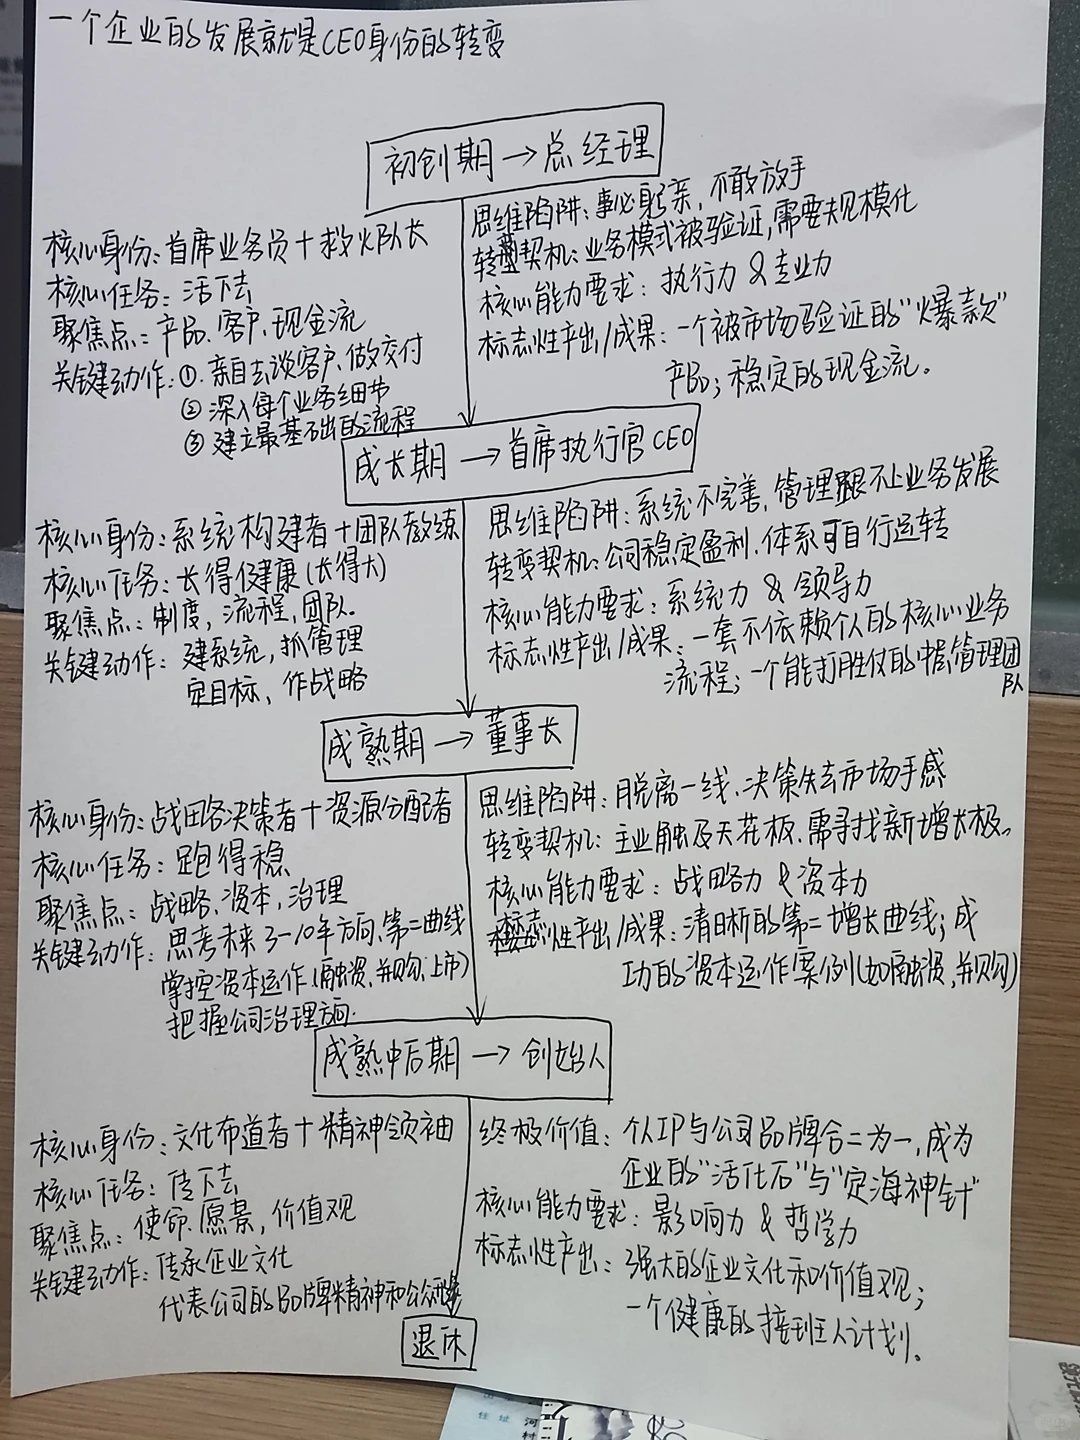 一个企业的发展就是CEO身份的转变
初创期→总经理
核心身份:首席业务员+救火队长
核心任务:活下去
聚焦点:产品、客户、现金流
关键动作:①.亲自去谈客户、做交付
②深入每个业务细节
③建立最基础的流程
思维陷阱:事必躬亲,不敢放手
转型契机:业务模式被验证,需要规模化
核心能力要求:执行力&专业力
标志性产出/成果:一个被市场验证的“爆款”
产品;稳定的现金流。
成长期→首席执行官CEO
核心身份:系统构建者+团队教练
核心任务:长得健康(长得大)
聚焦点:制度,流程,团队。
关键动作:建系统,抓管理
定目标、作战略
思维陷阱:系统不完善,管理跟不上业务发展
转变契机:公司稳定盈利.体系可自行运转
核心能力要求:系统力&领导力
标志性产出/成果:一套不依赖个人的核心业务
流程;一个能打胜仗的中层管理团
队
成熟期→董事长
核心身份:战略决策者+资源分配者
核心任务:跑得稳
聚焦点:战略、资本,治理
关键动作:思考未来3-10年方向、第二曲线
掌控资本运作(融资、并购、上市)
把握公司治理方向.
思维陷阱:脱离一线、决策失去市场手感
转变契机:主业触及天花板、需寻找新增长极。
核心能力要求:战略力&资本力
标志性产出/成果:清晰的第二增长曲线;成
功的资本运作案例(如融资,并购)
成熟中后期→创始人
核心身份:文化布道者+精神领袖
核心任务:传下去
聚焦点:使命.愿景,价值观
关键动作:传承企业文化
代表公司的品牌精神和公众
终极价值:个人IP与公司品牌合二为一,成为
企业的“活化石”与“定海神针”
核心能力要求:影响力&哲学力
标志性产出:强大的企业文化和价值观;
一个健康的接班人计划。
退休